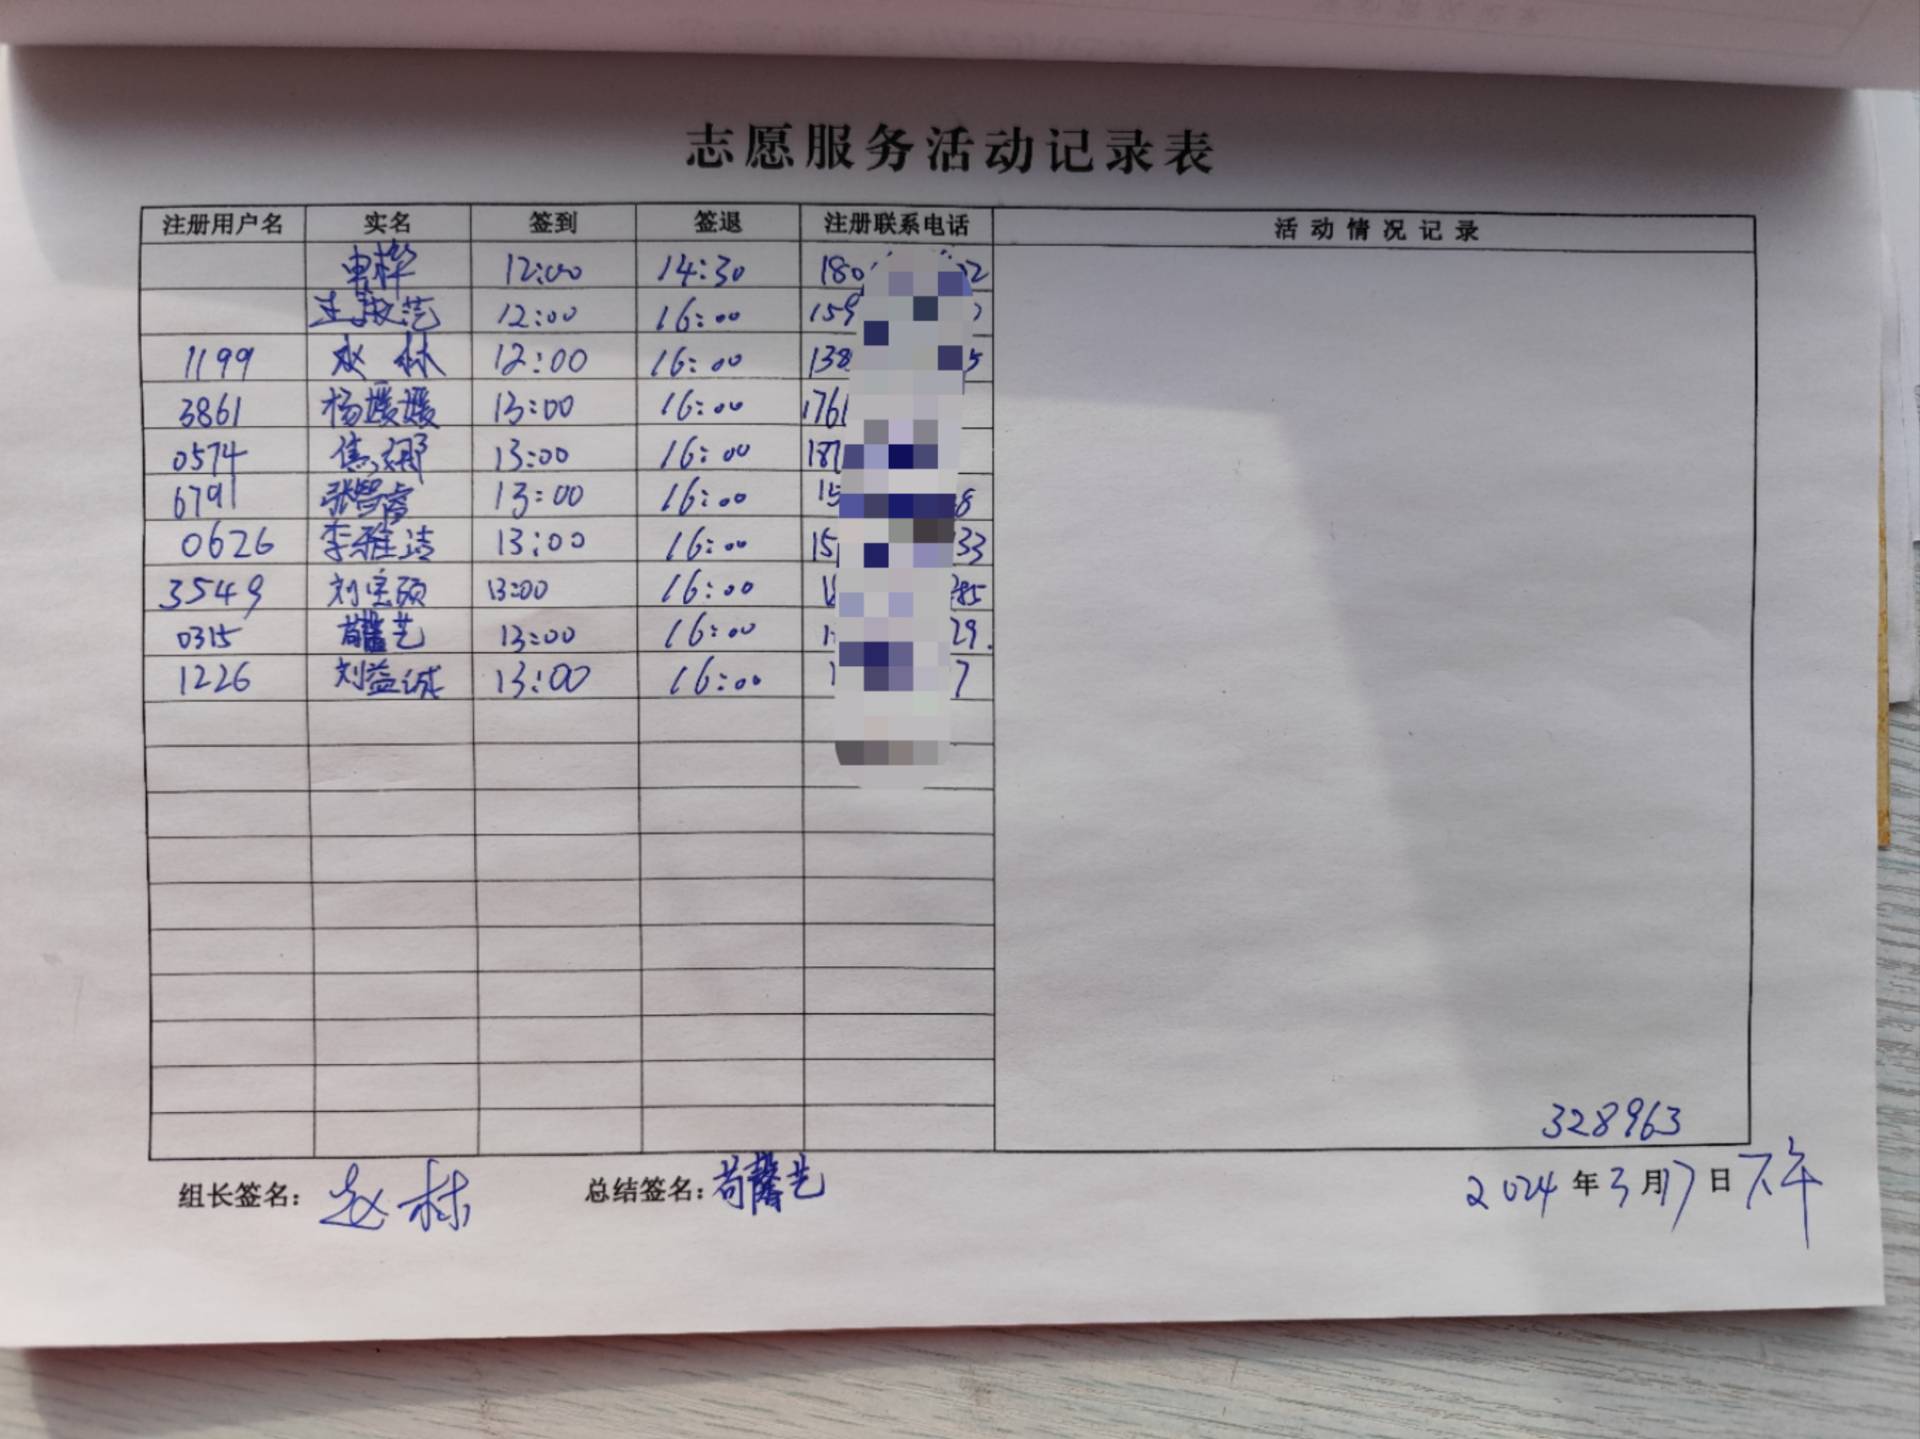 志愿服务活动记录表
注册用户名 实名 签到 签退 注册联系电话 活动情况记录
曹桦 12:00 14:30 180
12:00 16:00 159
1199 赵林 12:00 16:00 138 5
3861 杨媛媛 13:00 16:00 1761
0574 焦娜 13:00 16:00 187
6791 张智睿 13:00 16:00 15 8
0626 李雅洁 13:00 16:00 15 33
3549 刘宝硕 13:00 16:00 1 85
0315 苟馨艺 13:00 16:00 1 29.
1226 刘益诚 13:00 16:00 1 7
328963
组长签名: 赵林 总结签名: 苟馨艺 2024年3月17日下午